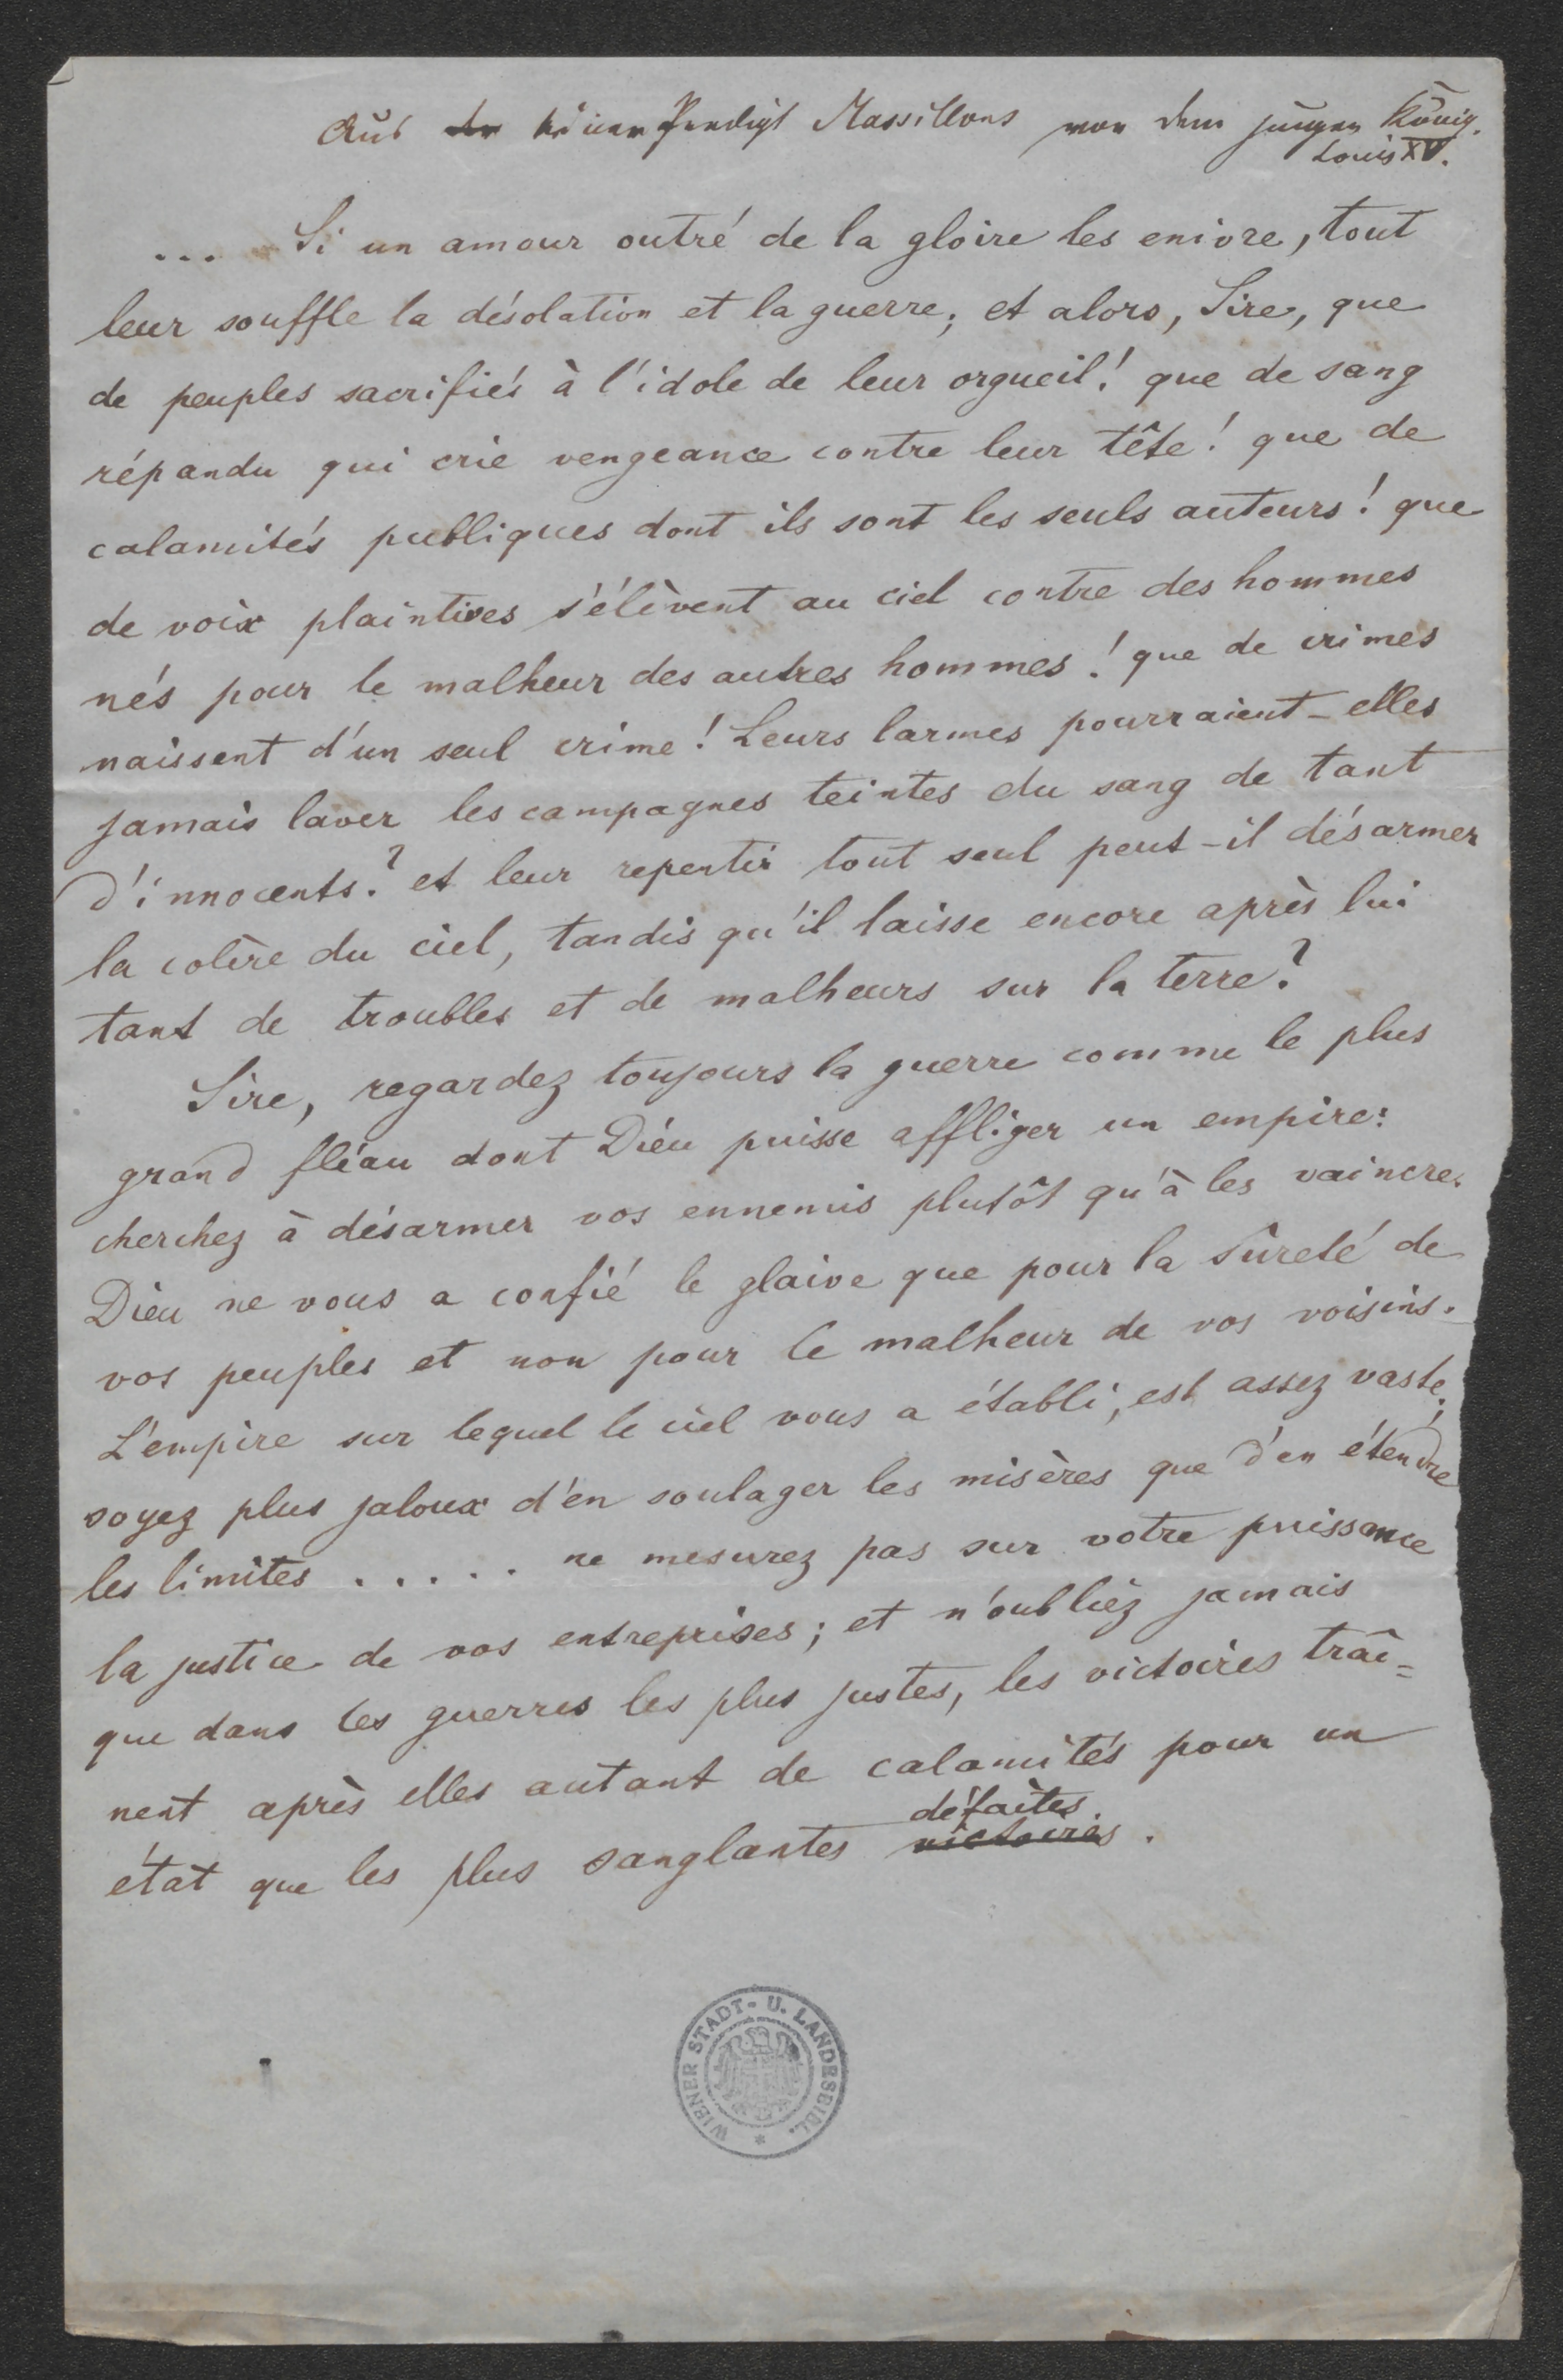 Aus der einer Predigt Massillons vor dem jungen König.
Louis XV.
... Si un amour outré de la gloire les enivre, tout
leur souffle la désolation et la guerre; et alors, Sire, que
de peuples sacrifiés à l'idole de leur orgueil! que de sang
répandu qui crie vengeance contre leur tête! que de
calamités publiques dont ils sont les seuls auteurs! que
de voix plaintives s'élèvent au ciel contre des hommes
nés pour le malheur des autres hommes! que de crimes
naissent d'un seul crime! Leurs larmes pourraient-elles
jamais laver les campagnes teintes du sang de tant
d'innocents? et leur repentir tout seul peut-il désarmer
la colère du ciel, tandis qu'il laisse encore après lui
tant de troubles et de malheurs sur la terre?
Sire, regardez toujours la guerre comme le plus
grand fléau dont Dieu puisse affliger un empire:
cherchez à désarmer vos ennemis plutôt qu'à les vaincre.
Dieu ne vous a confié le glaive que pour la sûreté de
vos peuples et non pour le malheur de vos voisins.
L'empire sur lequel le ciel vous a établi, est assez vaste;
soyez plus jaloux d'en soulager les misères que d'en étendre
les limites ..... ne mesurez pas sur votre puissance
la justice de vos entreprises; et n'oubliez jamais
que dans les guerres les plus justes, les victoires traî=
nent après elles autant de calamités pour un
défaites.
état que les plus sanglantes victoires.
WIENER STADT- U. LANDESBIBL. *